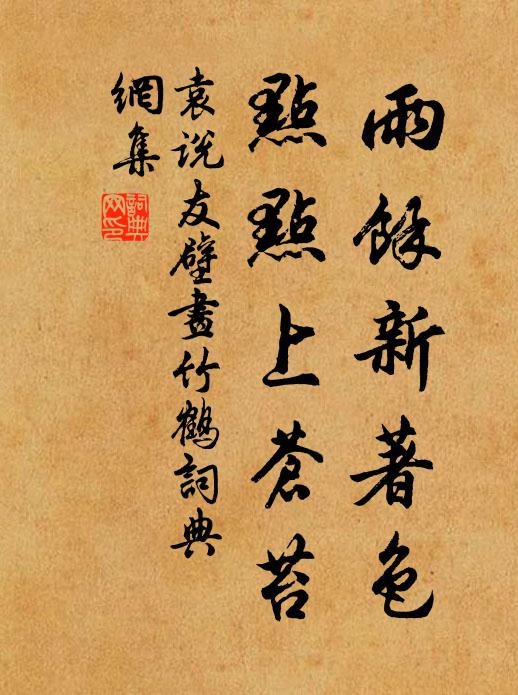 雨餘新著色
點點上蒼苔
袁説友壁畫竹鶴詞典
網集
詞典
网印